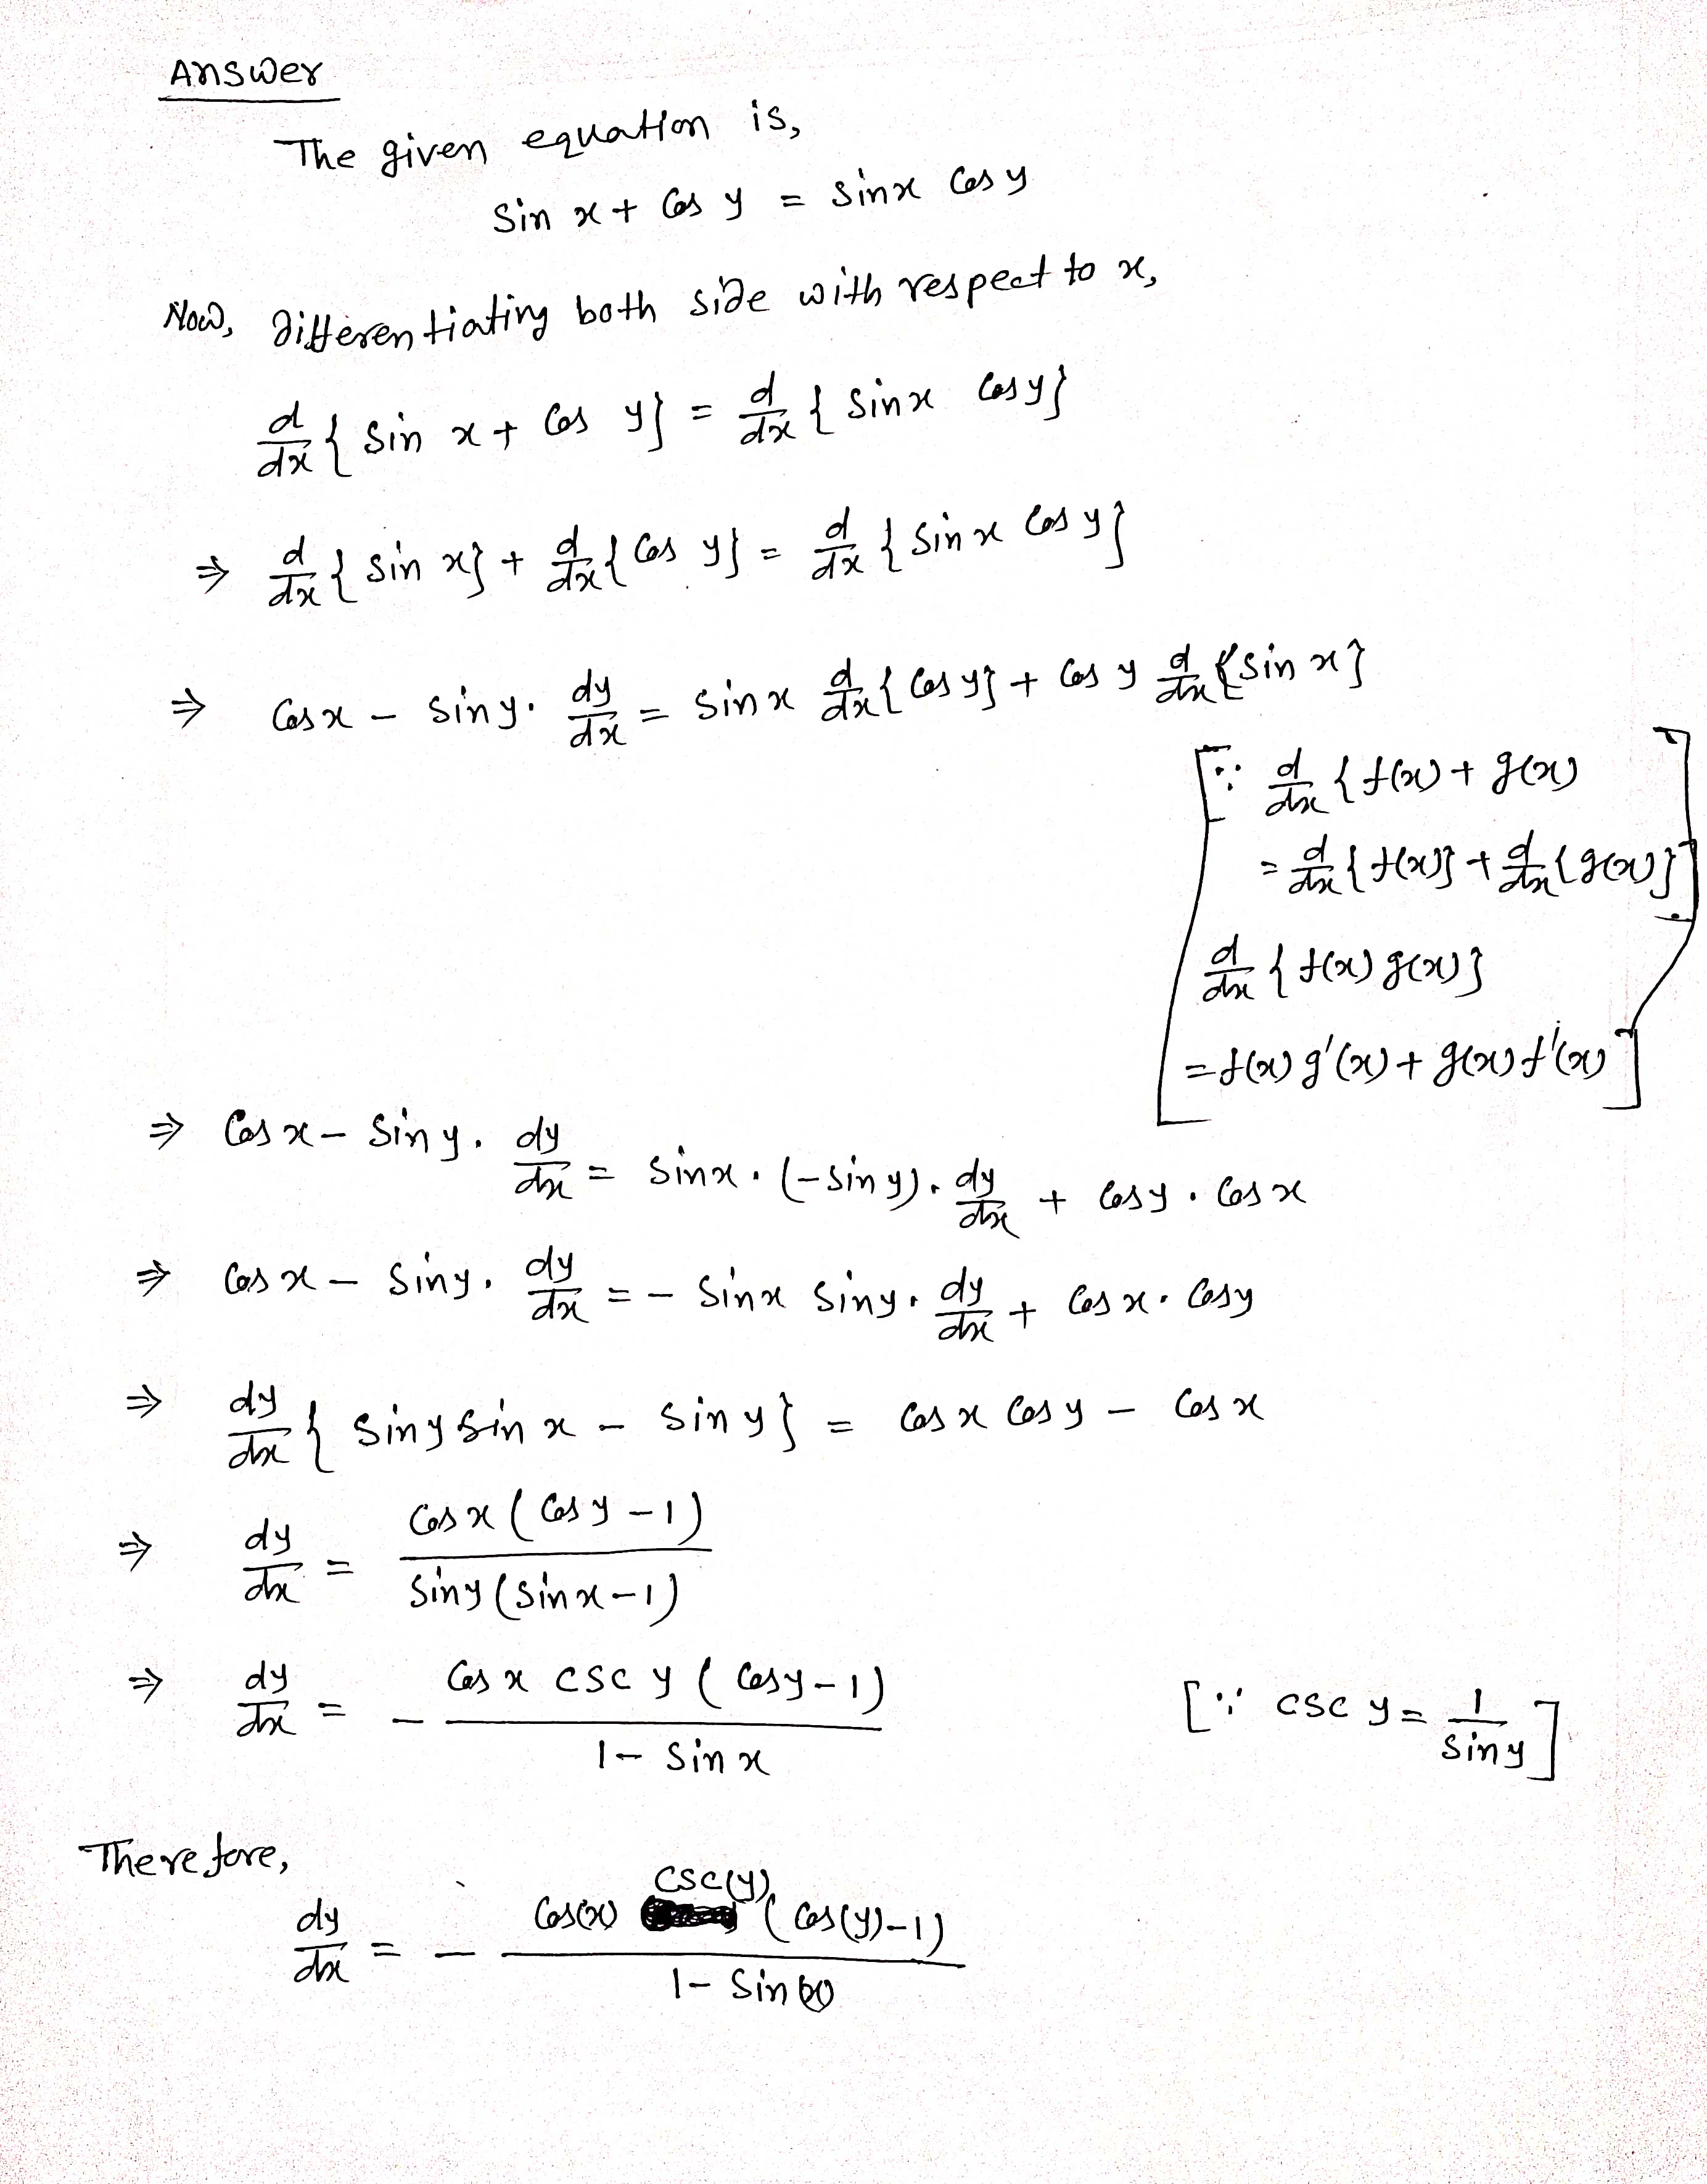 Answer
The given equation is,
Sin x + Cos y = Sinx Cos y
Now, differentiating both side with respect to x,
d/dx { Sin x + Cos y} = d/dx { Sinx Cosy}
⇒ d/dx { Sin x} + d/dx { Cos y} = d/dx { Sinx Cos y}
⇒ Cosx − Siny. dy/dx = Sinx d/dx { Cos y} + Cos y d/dx {Sin x}
[∵ d/dx { f(x) + g(x)
= d/dx { f(x)} + d/dx {g(x)}]
d/dx { f(x) g(x)}
= f(x) g'(x) + g(x) f'(x)]
⇒ Cos x − Sin y. dy/dx = Sinx. (−Sin y). dy/dx + Cosy . Cos x
⇒ Cos x − Siny. dy/dx = − Sinx Siny. dy/dx + Cos x. Cosy
⇒ dy/dx { Siny Sin x − Sin y} = Cos x Cos y − Cos x
⇒ dy/dx = Cos x ( Cos y − 1) / Siny ( Sin x − 1)
⇒ dy/dx = − Cos x csc y ( Cosy − 1) / 1 − Sin x [∵ csc y = 1/Sin y]
Therefore,
dy/dx = − Cos(x) csc(y) ( Cos(y) − 1) / 1 − Sin(x)